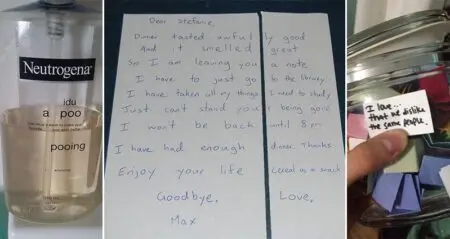 Neutrogena®
idu
a poo
pooing
Dear Stefanie,
Dinner tasted awful ly good
And it smelled great
So I am leaving you a note
I have to just go to the library
I have taken all my things I need to study
Just can't stand you being gone
I won't be back until 8pm
I have had enough dinner. Thanks
Enjoy your life Cereal as a snack
Goodbye, Love,
Max
I love...
that we dislike
the same people.